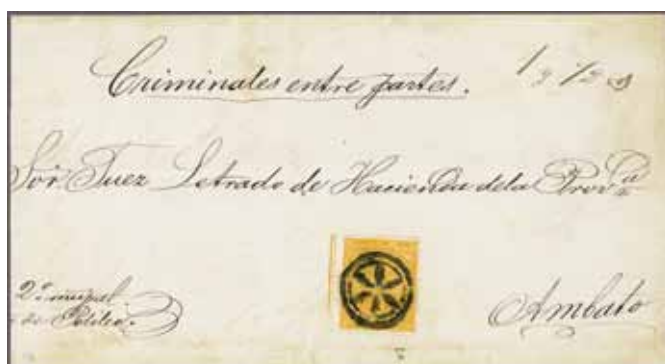 Criminales entre partes.
Sor Juez Letrado de Hacienda de la Provª
2º mupal.
de Polilco.
Ambato